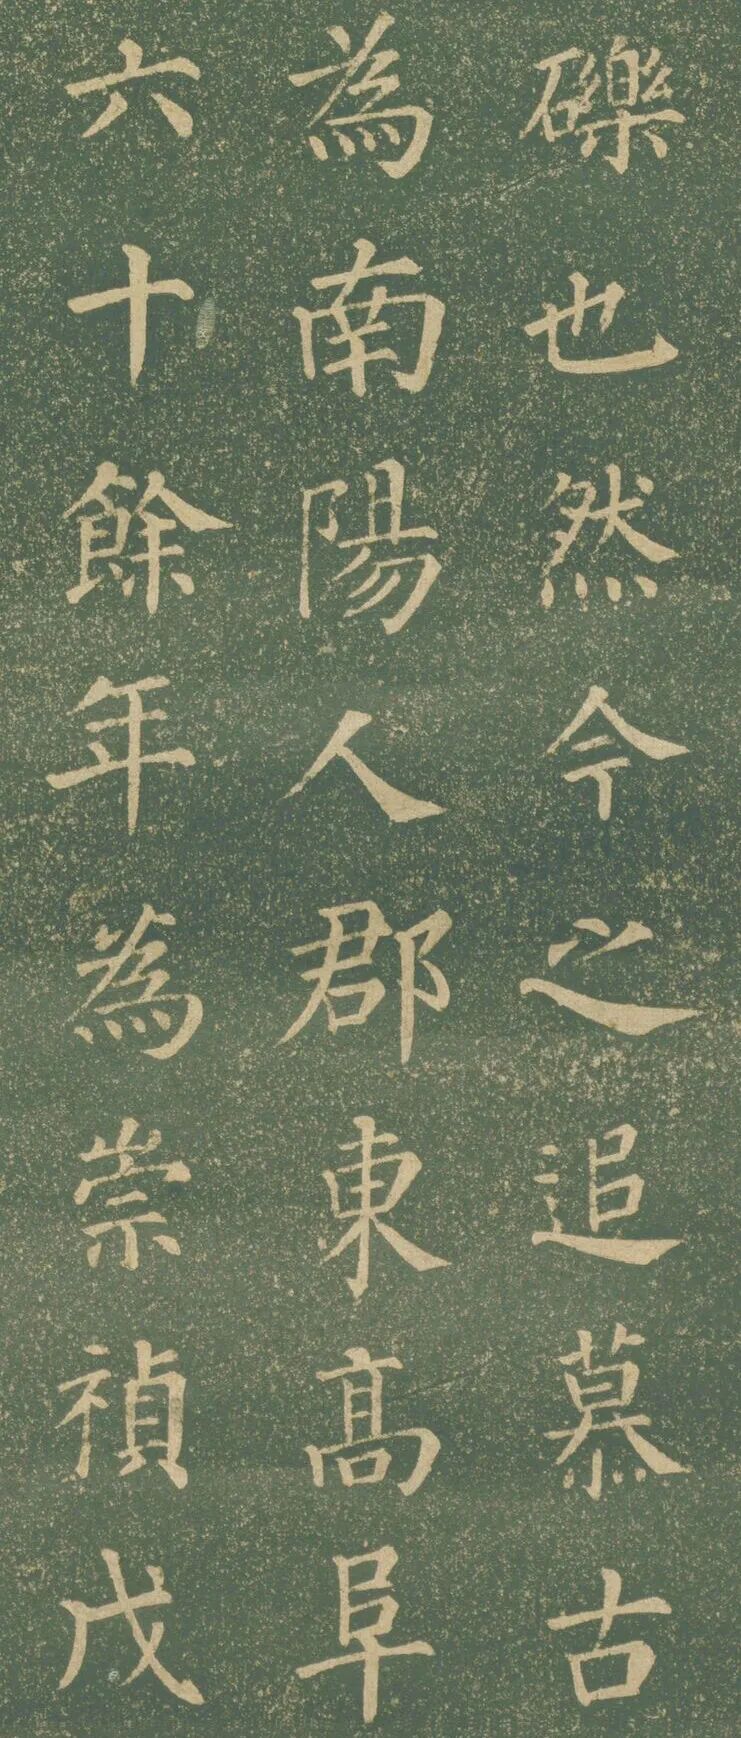 礫也然今之追慕古
為南陽人郡東高阜
六十餘年為崇禎戊